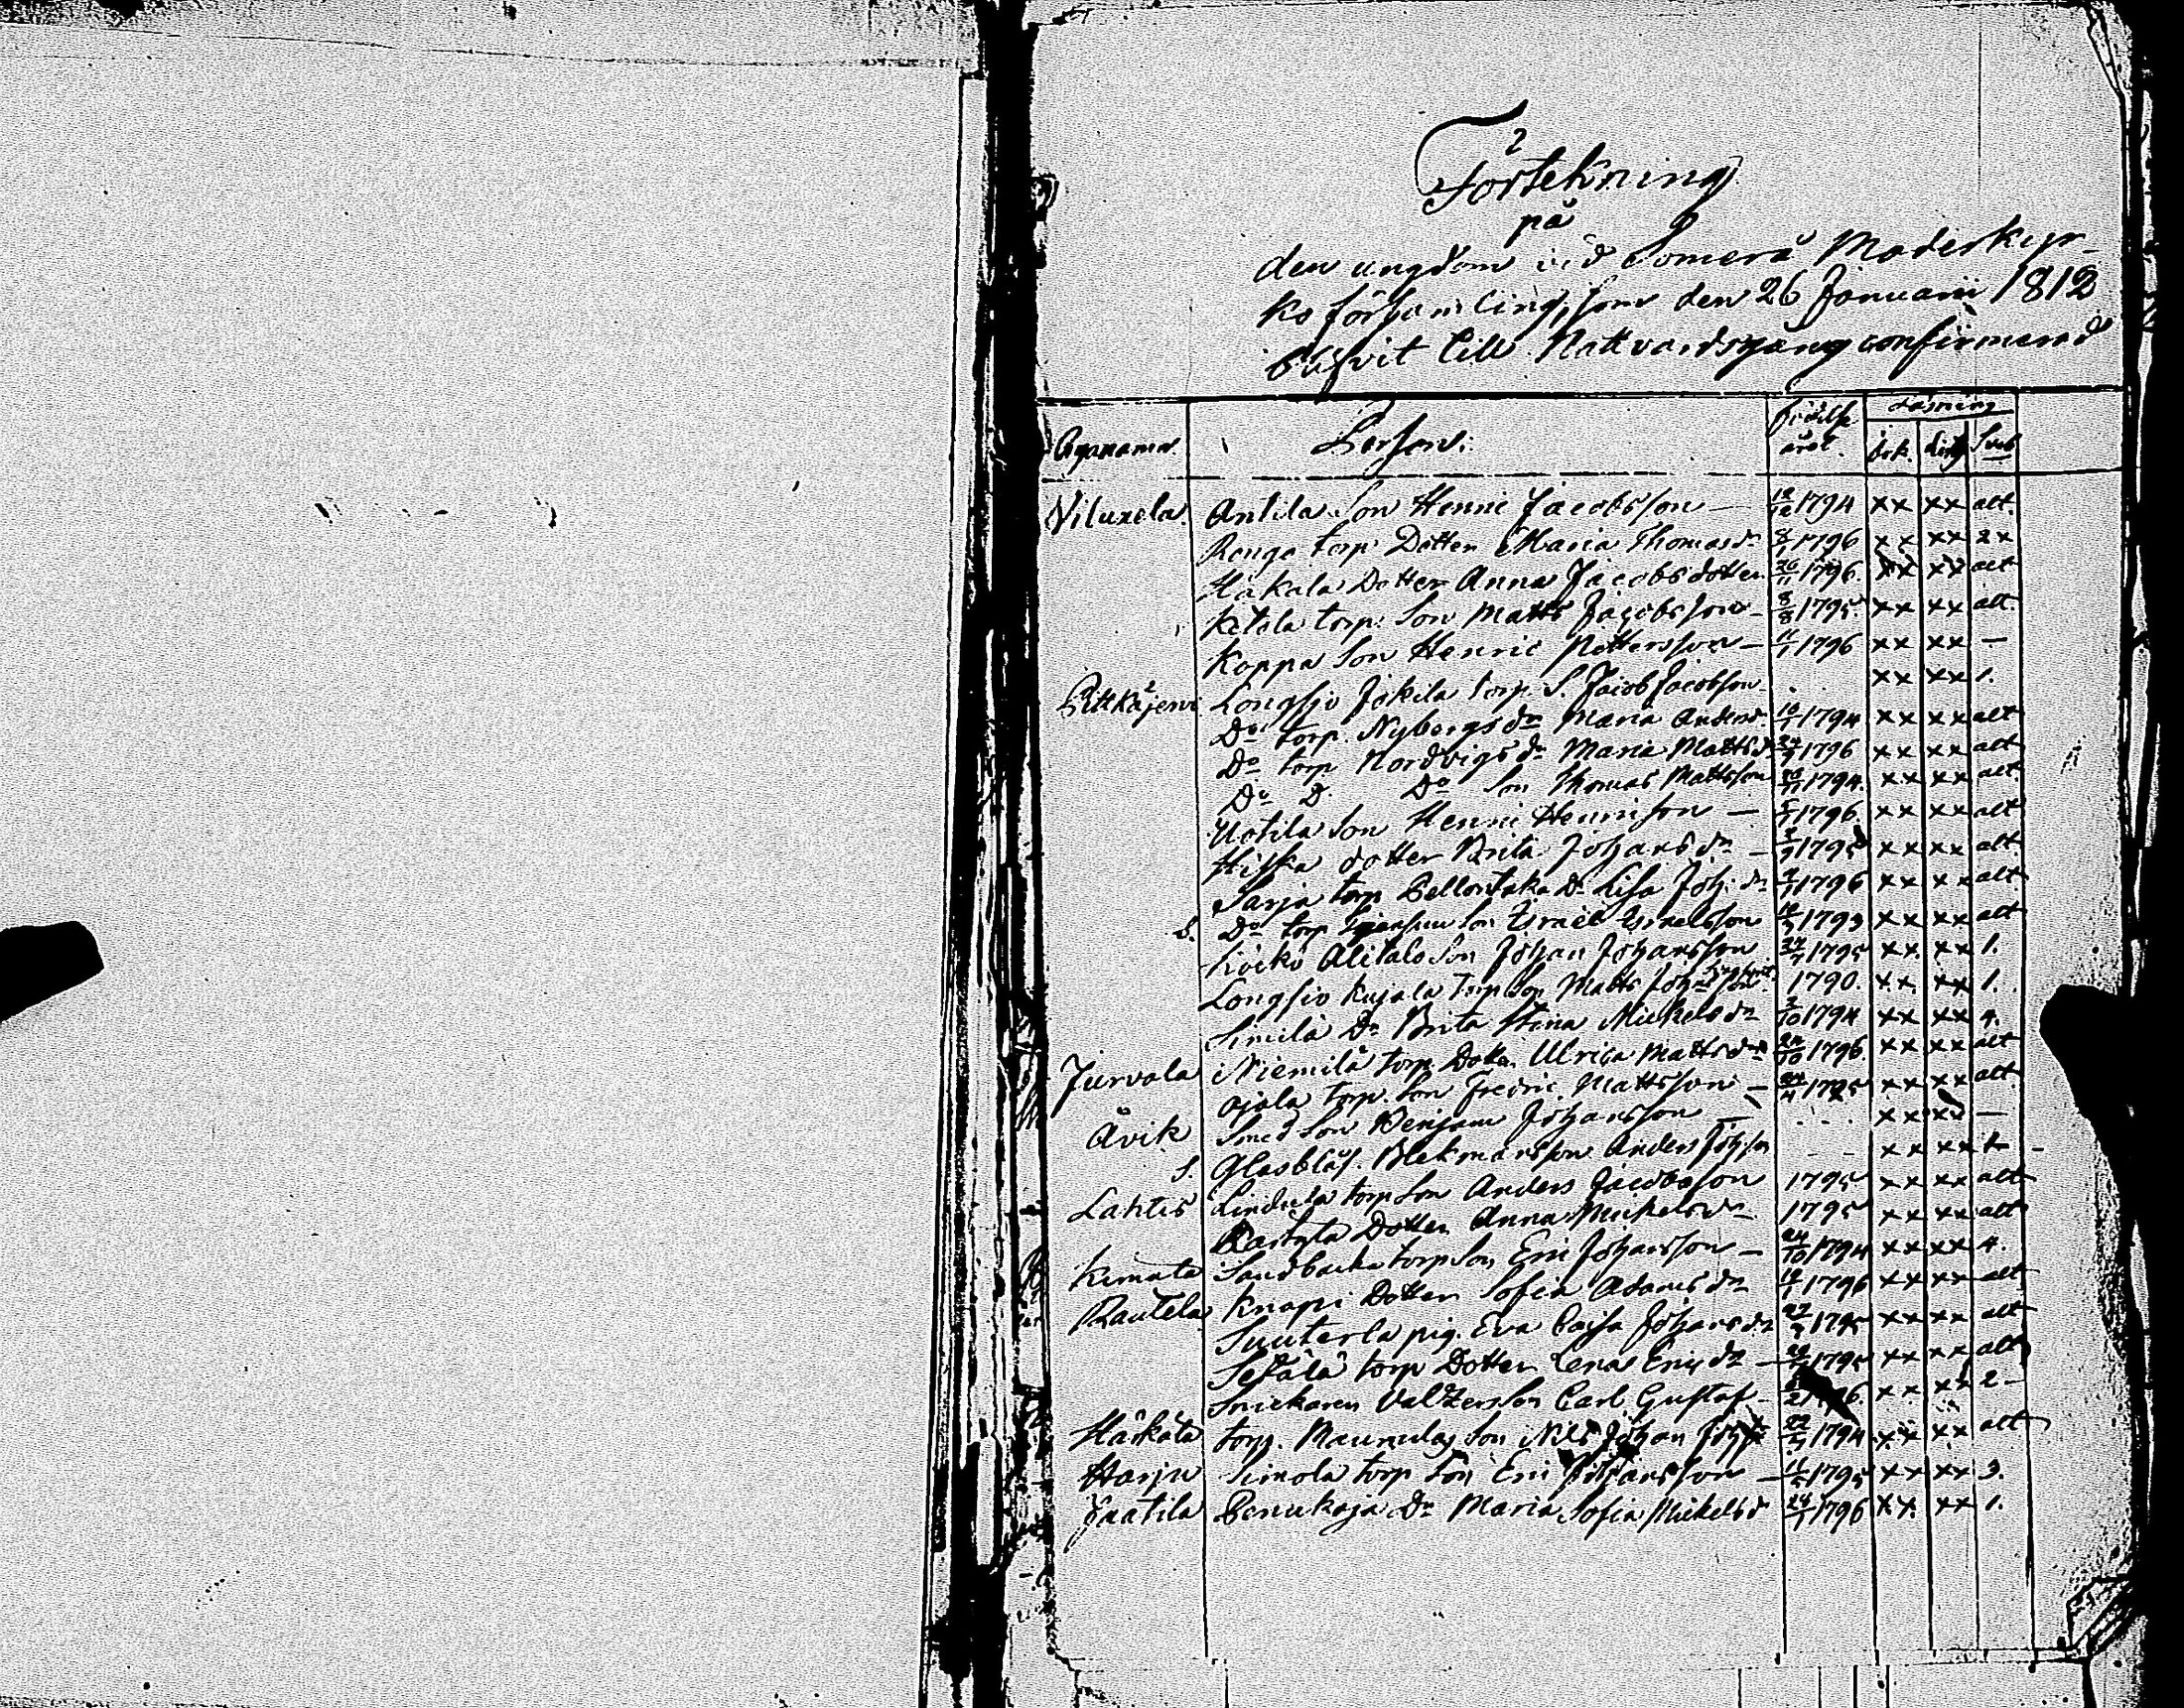 Förtekning
på
den ungdom vid Somerå Moderkyr-
ko församling, som den 26 Januarii 1812
blifvit till Nattvardsgång confirmerad
Bynamn Person: Födelse året. Läsning bok. Symb
Viluxela. Antila Son Henric Jacobsson — 1794 xx xx alt.
torp. Dotter Maria Thomasdr 8/1 1796 xx xx 2x
Håkala Dotter Anna Jacobsdotter 26/11 1796. xx xx alt
Ketola torp. Son Matts Jacobsson — 8/8 1795. xx xx alt.
Koppa Son Henric Pettersson — 11/1 1796 xx xx —
Pitkäjervi Longsjo Jokila torp. S. Jacob Jacobsson xx xx 1.
Do torp. Nybergs dr Maria Andersdr 1794 xx xx alt
Do torp Nordvigs dr Maria Mattsd 1796 xx xx alt
Do D. Do Son Thomas Mattsson 1794. xx xx alt
Uotila Son Henric Henricsson — 1796. xx xx alt
Hiska dotter Brita Johansdr — 1795 xx xx alt
Sarja torp Dr Lisa Joh. dr 1796 xx xx alt
S. Do torp Son Israel Israelsson 1793 xx xx alt
Alitalo Son Johan Johansson 1795 xx xx 1.
Longsio Kujala torp Son Matts 1790. xx xx 1.
Simila Dr Brita Stina Mickelsdr 1794 xx xx 4.
Jurvala Niemilä torp. Dotter Ulrica Mattsdr 1796. xx xx alt
Ojala torp. Son Fredric Mattsson — 1795 xx xx alt
Åvik Smed Son Benjam Johansson — xx xx —
S. Glasblås. Blekmansson Anders Johsson xx xx
Lahtis Lindula torp Son Anders Jacobsson 1795 xx xx alt
Dotter Anna Mickelsdr 1795 xx xx alt
Kimala Sandbacka torp Son Eric Johansson — 24/10 1794 xx xx 4.
Rautela Knapi Dotter Sofia Adamsdr 1796 xx xx alt
Suuterla pig. Eva Caisa Johansdr 1795 xx xx alt
Sepälä torp Dotter Lena Ericsdr — 1795 xx xx alt
Snickaren Valzers Son Carl Gustaf xx xx 2 —
Härkälä torp. Maunulas Son Nils Johan 1794 xx xx alt
Harju Simola torp Son Eric Johansson — 1795 xx xx 3.
Jaatila Penukoja Dr Maria Sofia Mickelsdr 1796 xx xx 1.